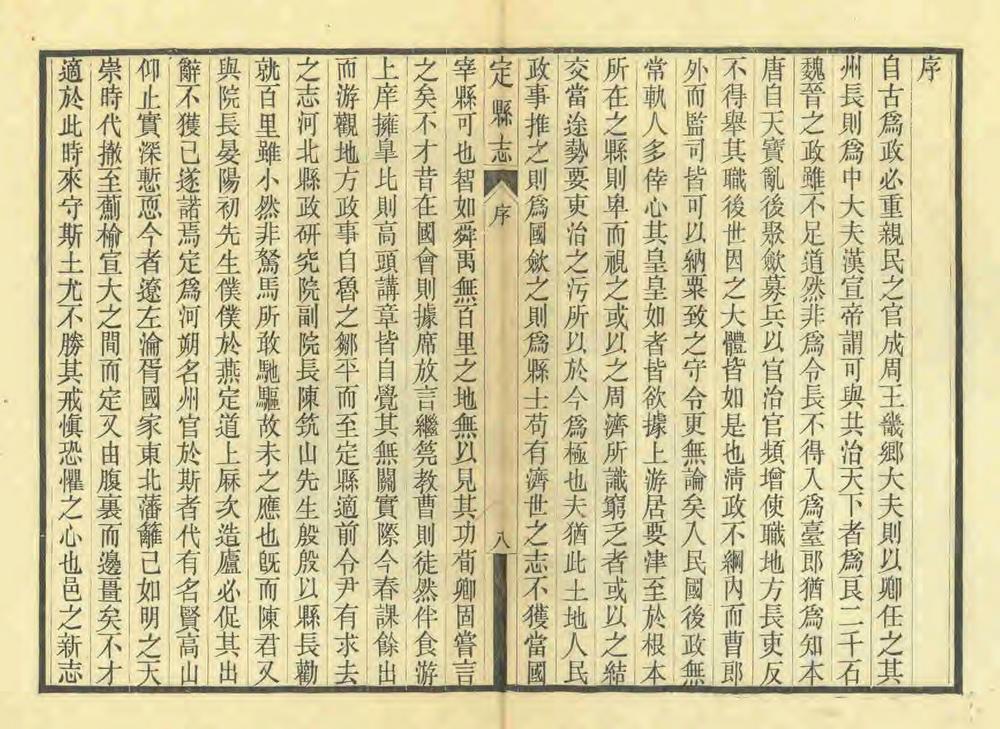 序
自古爲政必重親民之官成周王畿鄉大夫則以卿任之其
州長則爲中大夫漢宣帝謂可與共治天下者爲良二千石
魏晉之政雖不足道然非爲令長不得入爲臺郎猶爲知本
唐自天寶亂後聚斂募兵以官治官頻增使職地方長吏反
不得舉其職後世因之大體皆如是也淸政不綱內而曹郎
外而監司皆可以納粟致之守令更無論矣入民國後政無
常軌人多倖心其皇皇如者皆欲據上游居要津至於根本
所在之縣則卑而視之或以之周濟所識窮乏者或以之結
交當途勢要吏治之污所以於今爲極也夫猶此土地人民
政事推之則爲國歛之則爲縣士苟有濟世之志不獲當國
定縣志
序
八
宰縣可也智如舜禹無百里之地無以見其功荀卿固嘗言
之矣不才昔在國會則據席放言繼筦教曹則徒然伴食游
上庠擁臯比則高頭講章皆自覺其無關實際今春課餘出
而游觀地方政事自魯之鄒平而至定縣適前令尹有求去
之志河北縣政研究院副院長陳筑山先生殷殷以縣長勸
就百里雖小然非駑馬所敢馳驅故未之應也旣而陳君又
與院長晏陽初先生僕僕於燕定道上麻次造廬必促其出
辭不獲已遂諾焉定爲河朔名州官於斯者代有名賢高山
仰止實深慙恧今者遼左淪胥國家東北藩籬已如明之天
崇時代撤至薊榆宣大之間而定又由腹裏而邊畺矣不才
適於此時來守斯土尤不勝其戒愼恐懼之心也邑之新志